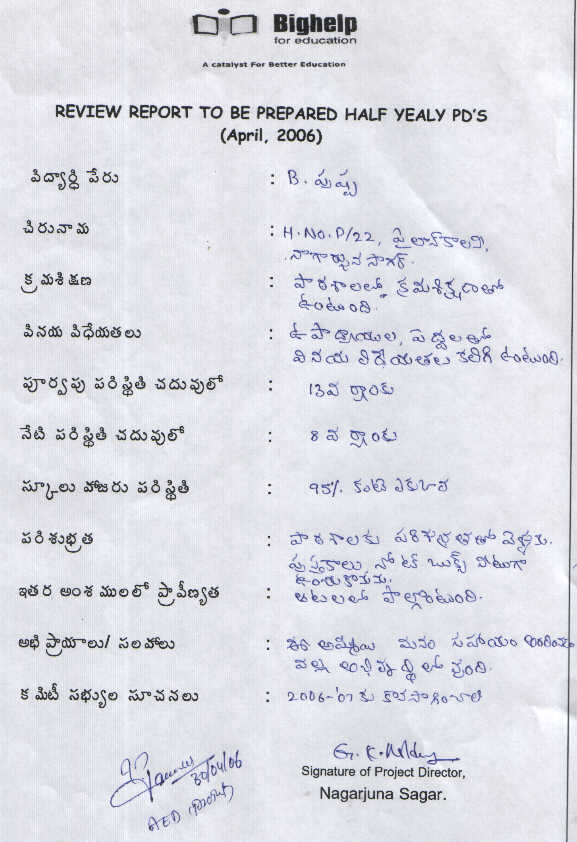 Bighelp
for education
A catalyst For Better Education
REVIEW REPORT TO BE PREPARED HALF YEALY PD'S
(April, 2006)
విద్యార్థి పేరు : B. పుష్ప
చిరునామ : H.No.P/22, పైలాన్ కాలని,
నాగార్జున సాగర్.
క్రమశిక్షణ : పాఠశాలలో క్రమశిక్షణతో
ఉంటుంది.
వినయ విధేయతలు : ఉపాధ్యాయుల, పెద్దలతో
వినయ విధేయతలు కలిగి ఉంటుంది.
పూర్వపు పరిస్థితి చదువులో : 13వ ర్యాంకు
నేటి పరిస్థితి చదువులో : 8వ ర్యాంకు
స్కూలు హాజరు పరిస్థితి : 95% కంటె ఎక్కువ
పరిశుభ్రత : పాఠశాలకు పరిశుభ్రతతో
పుస్తకాలు, నోట్ బుక్స్ నీటుగా
ఇతర అంశములలో ప్రావీణ్యత : ఆటలలో పాల్గొంటుంది.
అభిప్రాయాలు/ సలహాలు : ఈ అమ్మాయి మనం సహాయం అందించడం
వల్ల అభివృద్ధిలో వుంది.
కమిటీ సభ్యుల సూచనలు : 2006-'07 కు కొనసాగించాలి
30/04/06
AED
Signature of Project Director,
Nagarjuna Sagar.